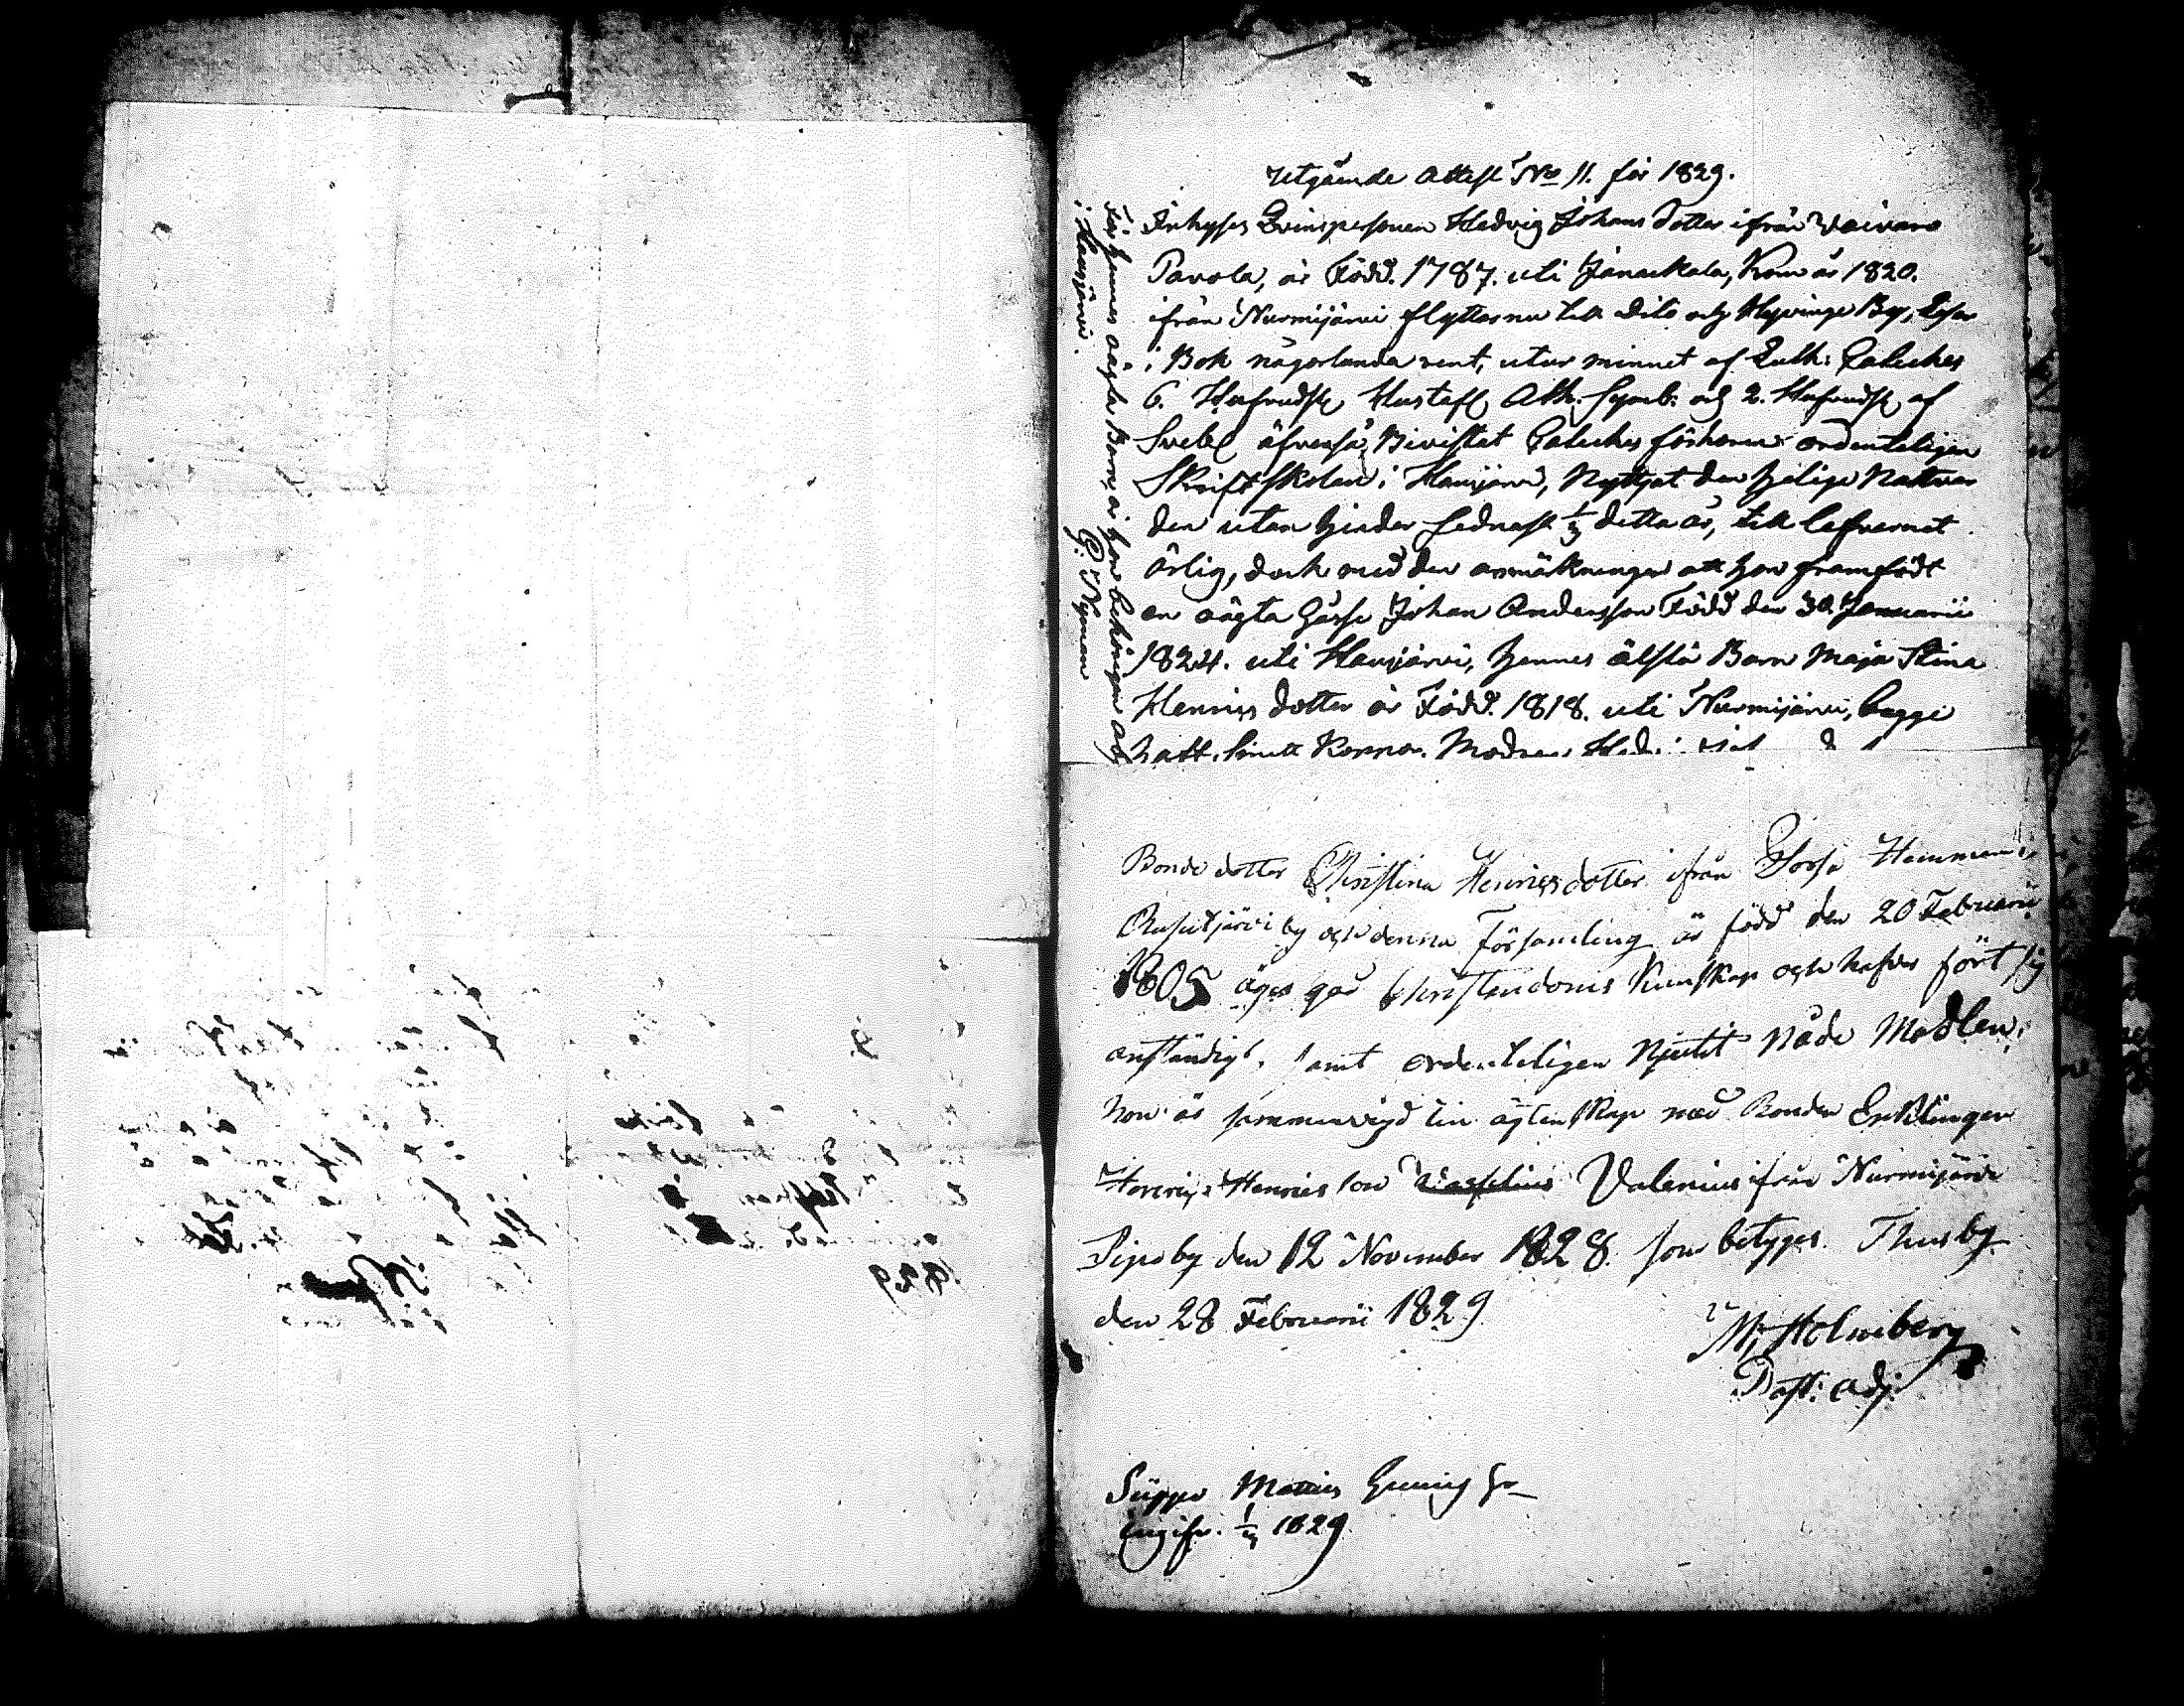 Utgående Attest No 11. för 1829.
Inhyses Qvinspersonen Hedvig Johans dotter ifrån Waivaro
Pavola, är Född. 1787. uti Janackala, Kom år 1820.
ifrån Nurmijärvi flyttar nu till dito och Hyvinge By, Läser
i Bok någorlunda rent, utur minnet af Luth: Cateches
6. Hufvudst Hustafl Ath. Symb. och 2. Hufvudst af
Sveb äfvenså, Bivistat Catechis förhören ordenteligen
Skriftskolan i Hausjärvi, Nyttjat den helige Nattvar
den utan hinder sednast detta år, till lefvernet
ärlig, dock med den anmärkningen att hon framfödt
en oägta Gosse Johan Andersson Född den 30. Januarii
1824. uti Hausjärvi, hennes älsta Barn Maja Stina
Henrics dotter är Född. 1818. uti Nurmijärvi, bägge
haft. Smitt Koppor. Modren
För hennes oägta Barn, är hon behörigen abs
i Hausjärvi. G: Nyman
Bonde dotter Christina Henrics dotter ifrån Heimman i
Rusutjärvi by och denna Församling är född den 20 Februarii
1805 äger god Christendoms Kunskap och hafver fört sig
anständigt, samt ordenteligen Njutit Nåde Medlen;
hon är sammanvigd till ägtenskap med Bonden Enklingen
Henric Henrics son Valenius ifrån Nurmijärvi
by den 12 November 1828. som betyges. Thusby
den 28 Februarii 1829
M. Holmberg
Past: adj.
Matts
1829